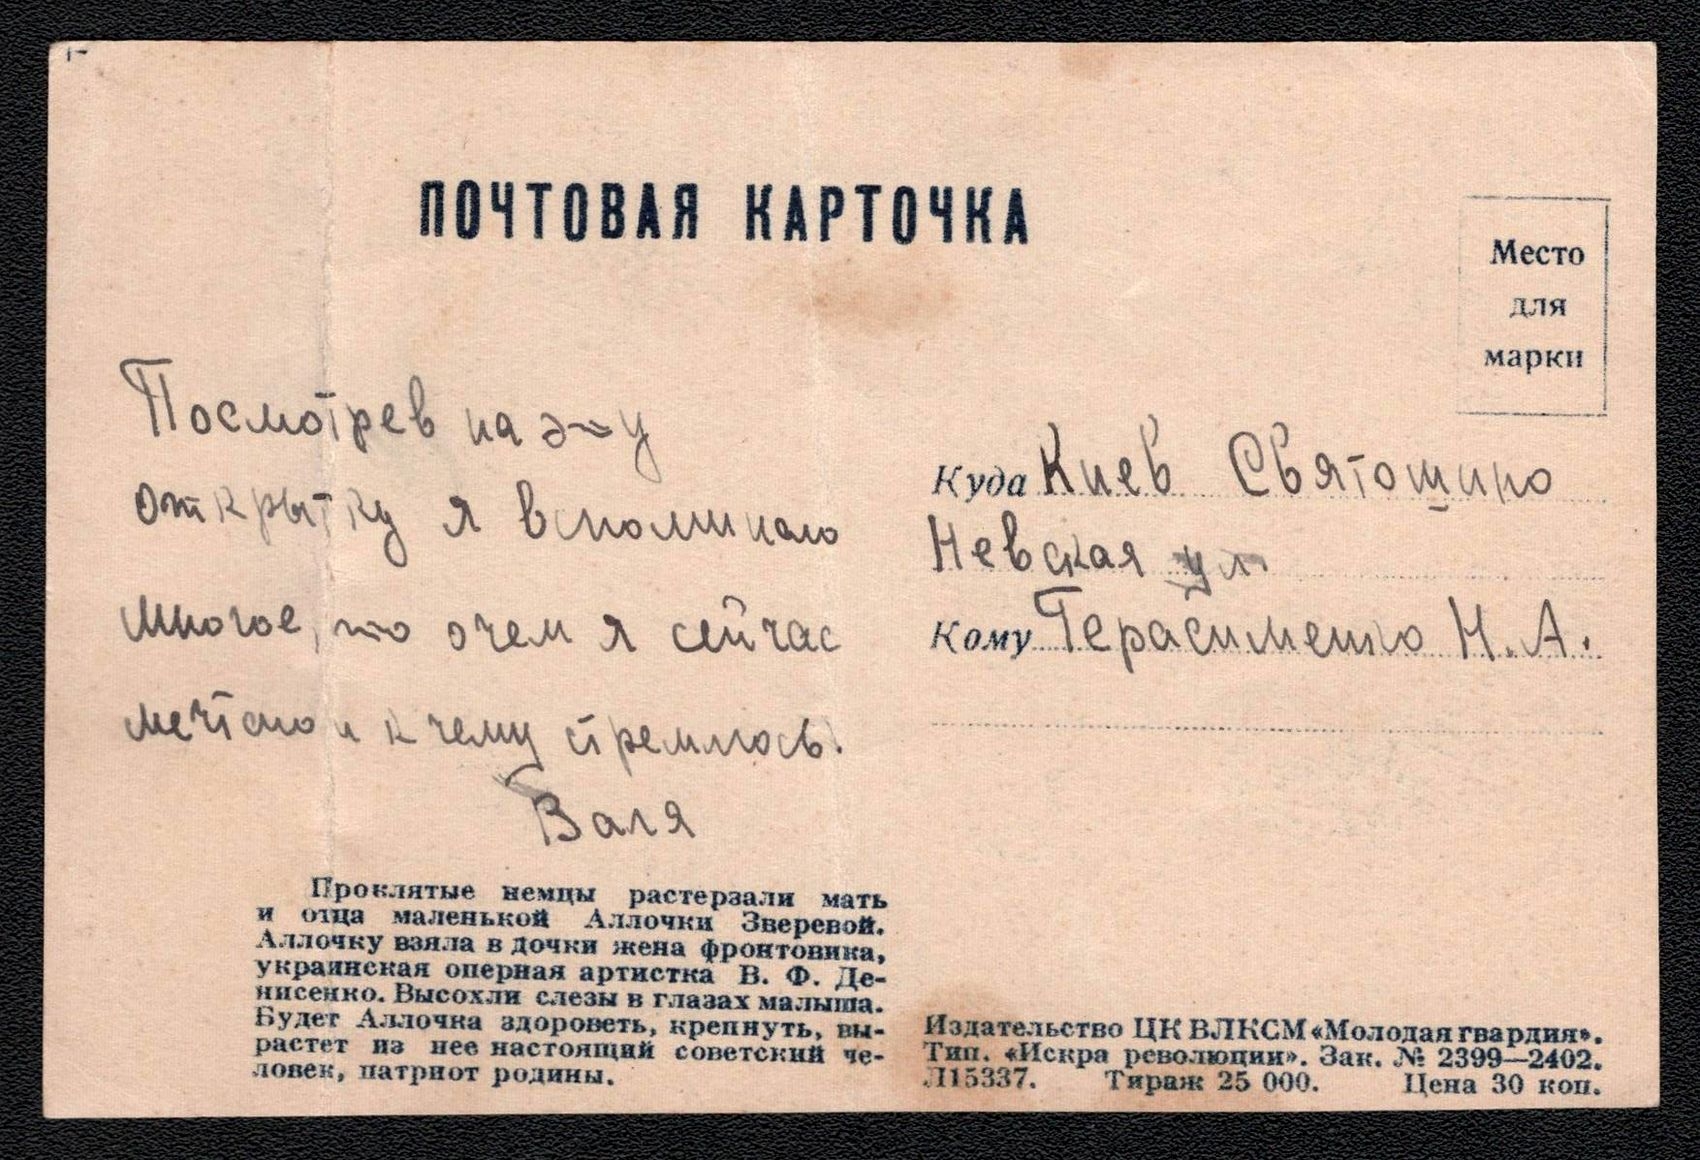 ПОЧТОВАЯ КАРТОЧКА
Место
для
марки
Посмотрев на эту
открытку я вспоминаю
многое, то о чем я сейчас
мечтаю и к чему стремлюсь.
Валя
Куда Киев Святошино
Невская ул.
Кому Герасименко Н.А.
Проклятые немцы растерзали мать
и отца маленькой Аллочки Зверевой.
Аллочку взяла в дочки жена фронтовика,
украинская оперная артистка В. Ф. Де-
нисенко. Высохли слезы в глазах малыша.
Будет Аллочка здороветь, крепнуть, вы-
растет из нее настоящий советский че-
ловек, патриот родины.
Издательство ЦК ВЛКСМ «Молодая гвардия».
Тип. «Искра революции». Зак. № 2399—2402.
Л15337. Тираж 25 000. Цена 30 коп.